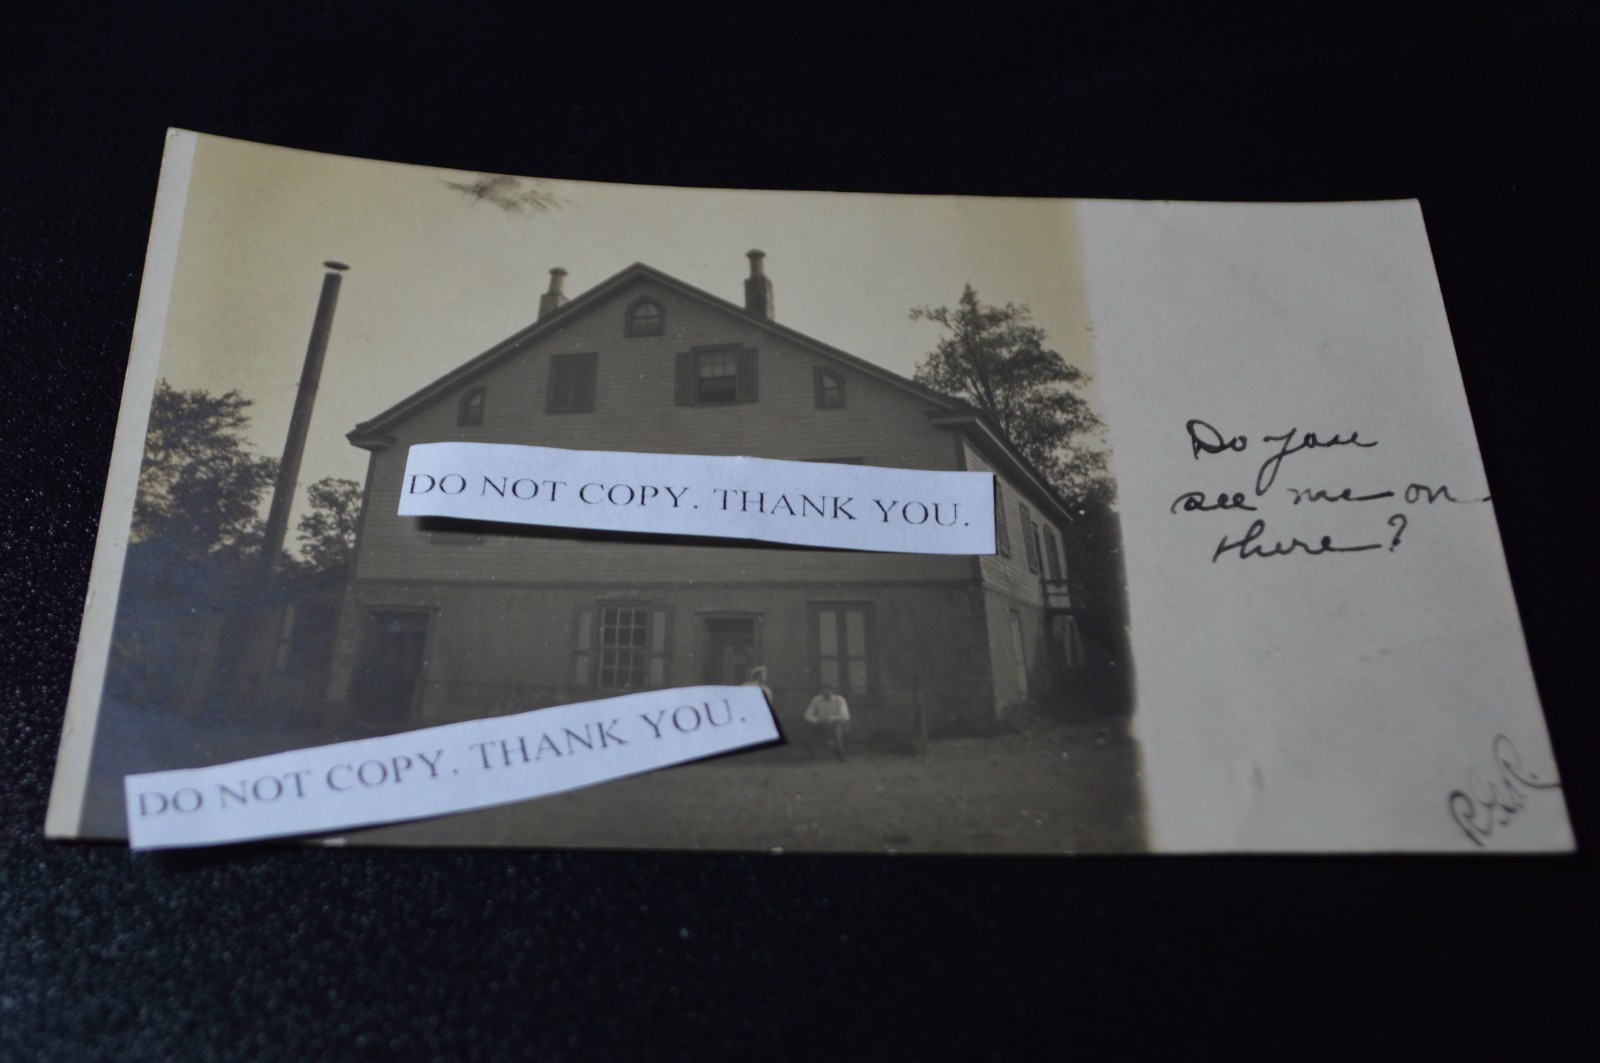 DO NOT COPY. THANK YOU.
Do you
see me on
there?
DO NOT COPY. THANK YOU.